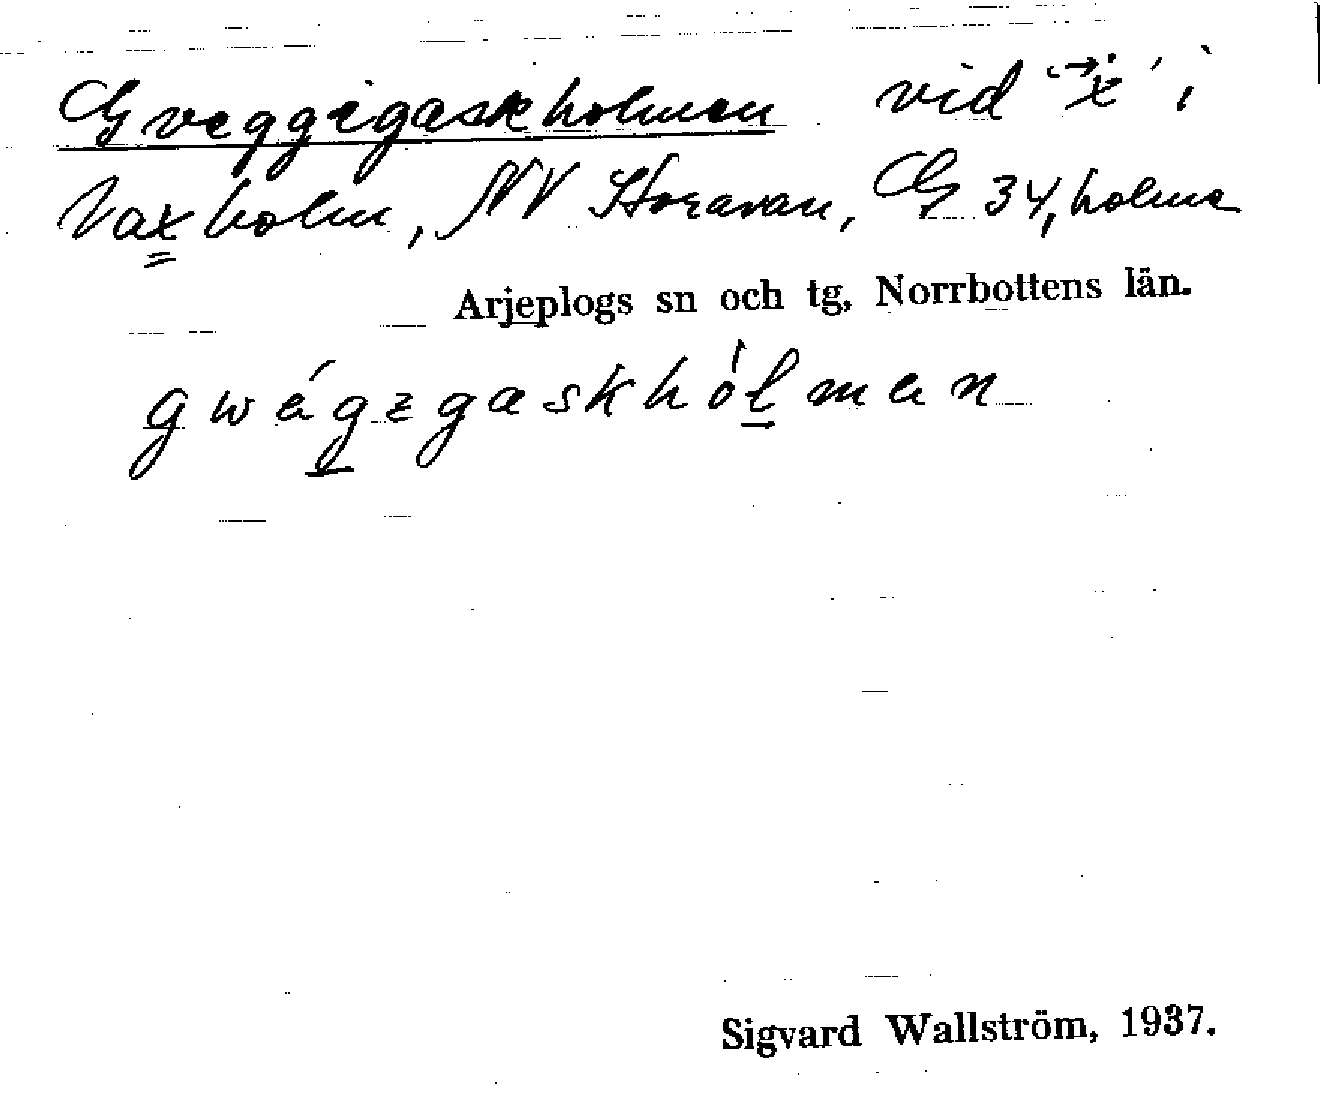 Gveggigaskholmen vid "→x" i
Vaxholm, NV Storavan, G 34, holme
Arjeplogs sn och tg, Norrbottens län.
gwégzgaskhólman
Sigvard Wallström, 1937.